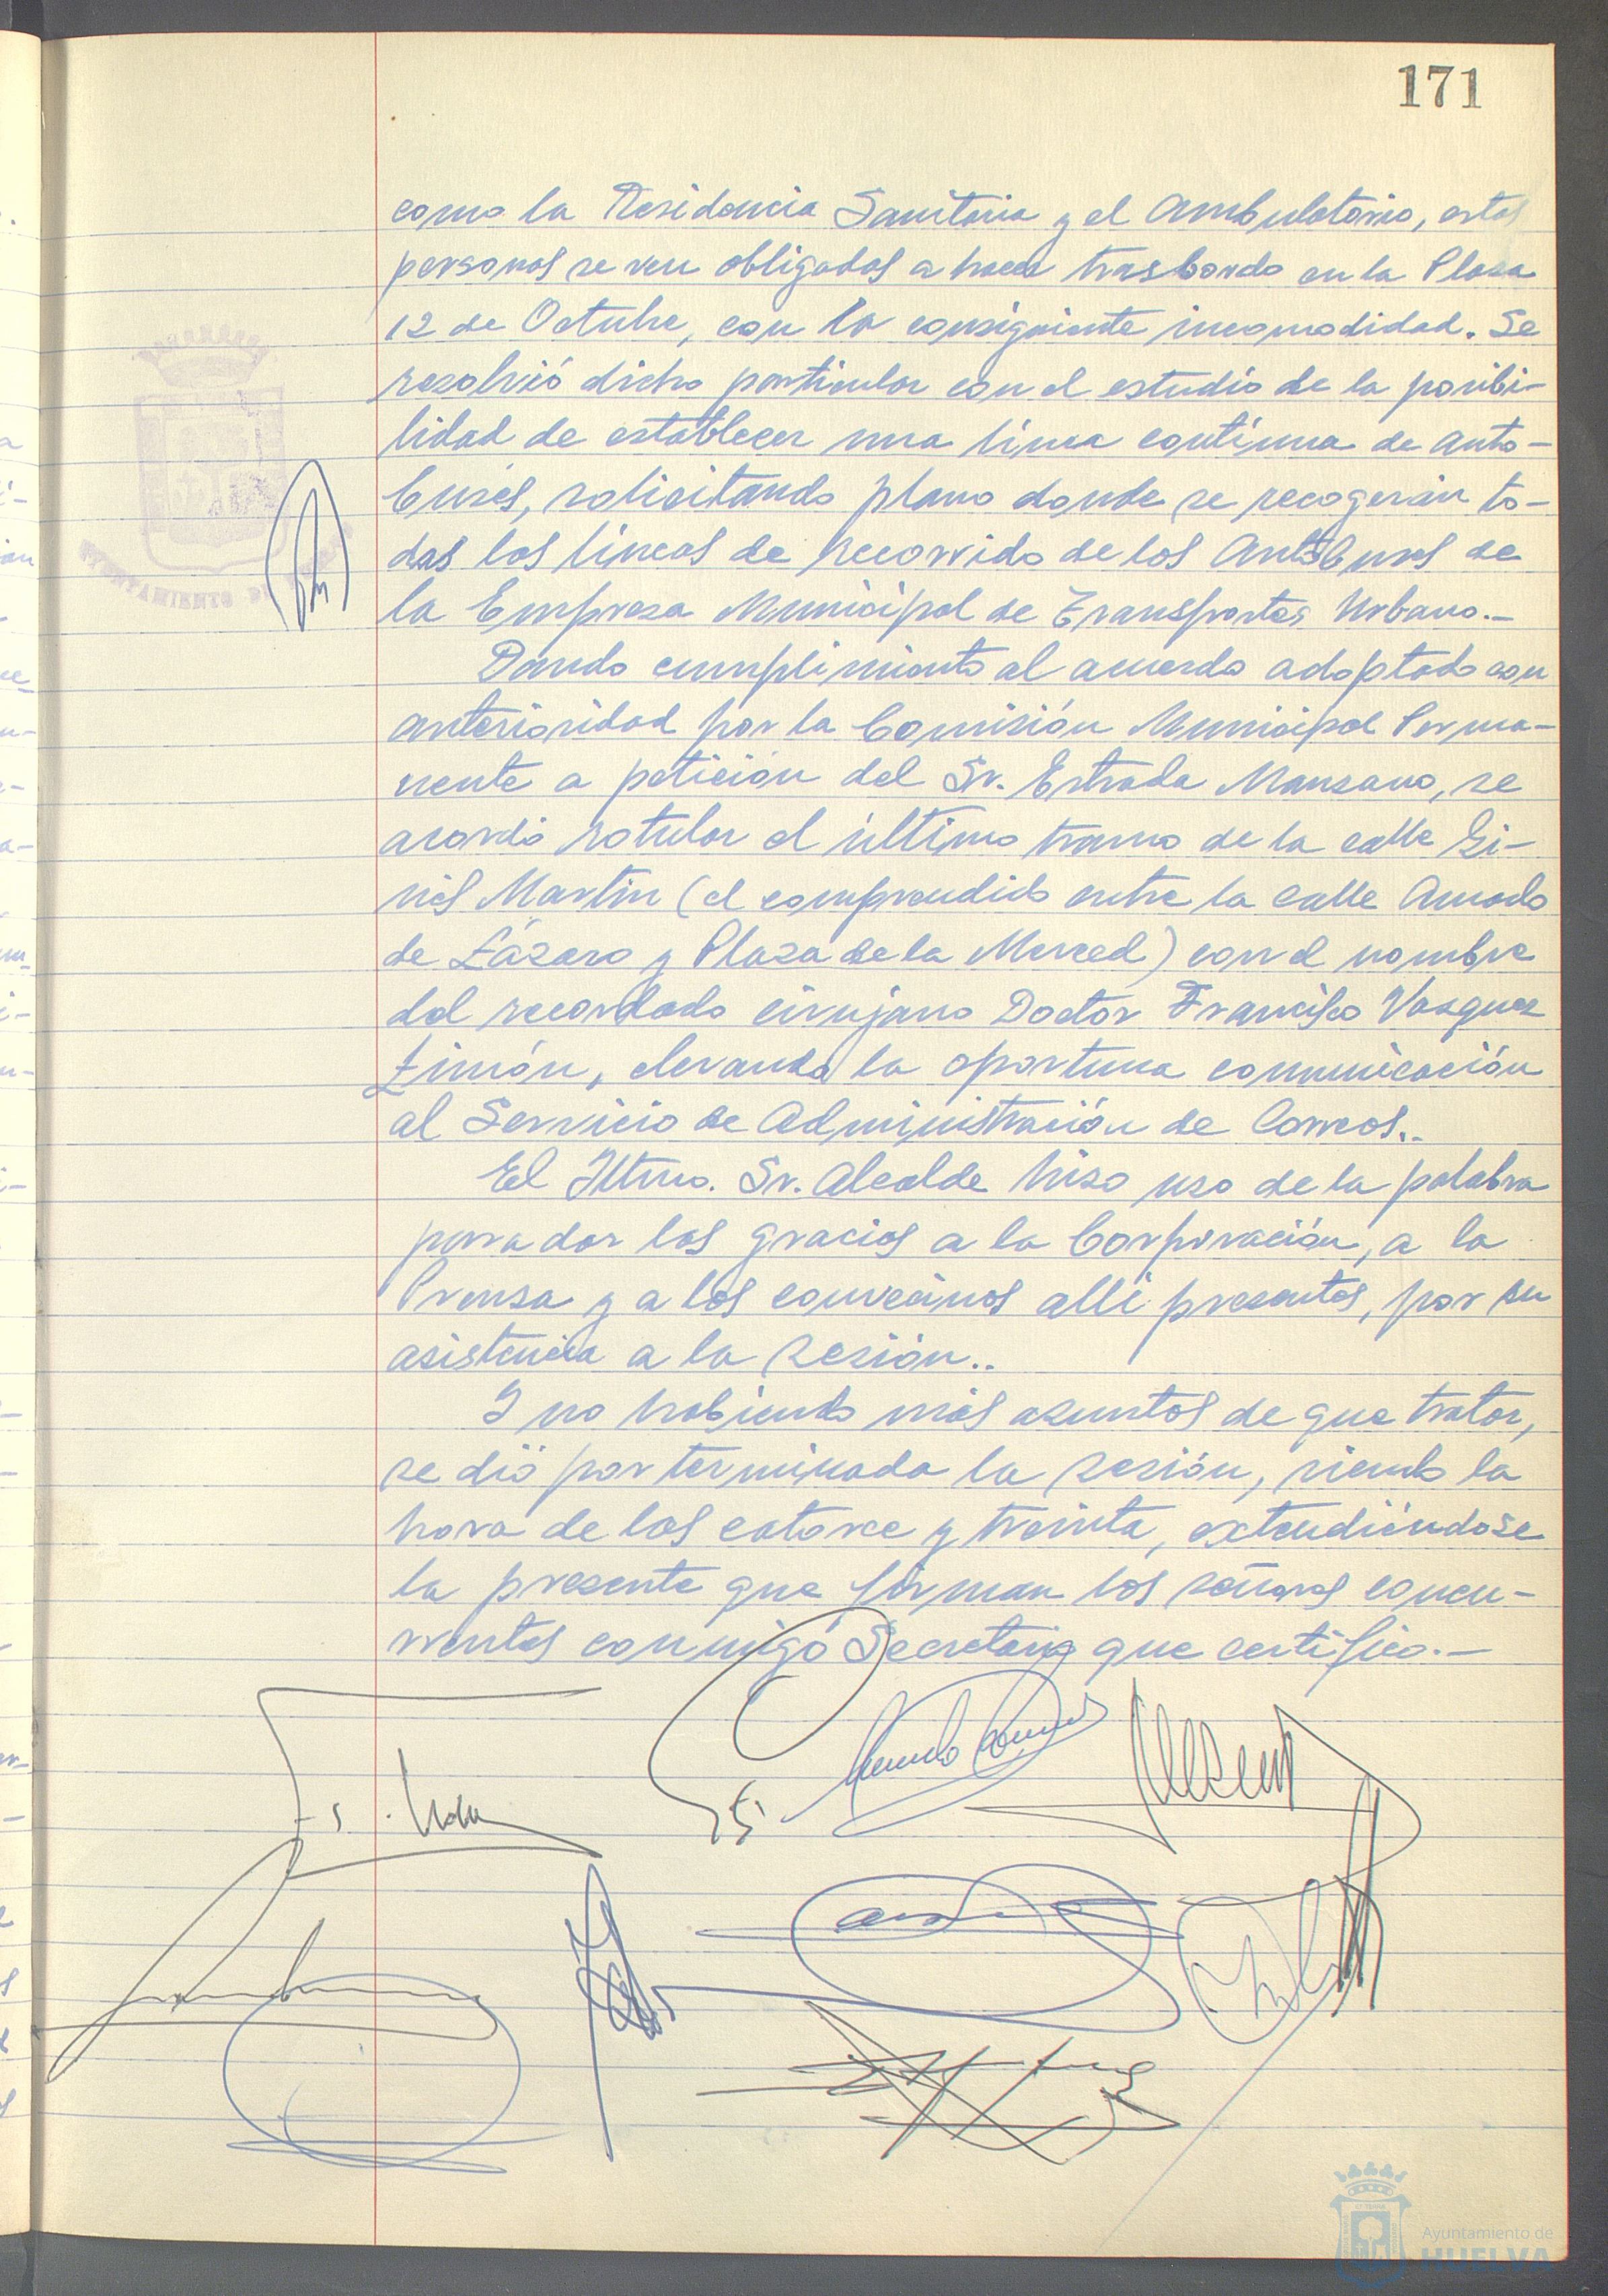 171
como la Residencia Sanitaria y el Ambulatorio, estas
personas se ven obligadas a hacer trasbordo en la Plaza
12 de Octubre, con la consiguiente incomodidad. Se
resolvió dicho particular con el estudio de la posibi-
lidad de establecer una línea contínua de auto-
buses, solicitando plano donde se recogerán to-
das las líneas de recorrido de los Autobuses de
la Empresa Municipal de Transportes Urbano.-
Dando cumplimiento al acuerdo adoptado con
anterioridad por la Comisión Municipal Perma-
nente a petición del Sr. Estrada Manzano, se
acordó rotular el último tramo de la calle Gi-
nés Martín (el comprendido entre la calle Amado
de Lázaro y Plaza de la Merced) con el nombre
del recordado cirujano Doctor Francisco Vazquez
Limón, elevando la oportuna comunicación
al Servicio de Administración de Correos..
El Iltmo. Sr. Alcalde hizo uso de la palabra
para dar las gracias a la Corporación, a la
Prensa y a los convecinos alli presentes, por su
asistencia a la sesión..
Y no habiendo más asuntos de que tratar,
se dió por terminada la sesión, siendo la
hora de las catorce y treinta, extendiéndose
la presente que firman los señores concu-
rrentes conmigo Secretario que certifico.-
AYUNTAMIENTO DE HUELVA
Ayuntamiento de
HUELVA